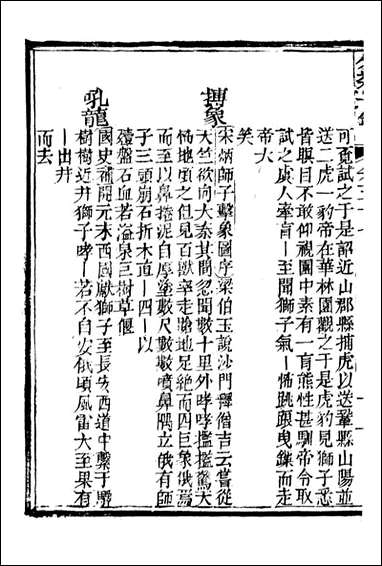 可覓試之于是詔近山郡縣捕虎以送鞏縣山陽並
送二虎一豹帝在華林園觀之于是虎豹見獅子悉
皆瞑目不敢仰視園中素有一盲熊性甚馴帝令取
試之虞人牽盲｜至聞獅子氣｜怖跳踉曳鎖而走
帝大
笑
搏象
宋炳師子擊象圖序梁伯玉說沙門釋僧吉云嘗從
天竺欲向大秦其間忽聞數十里外哮哮檻檻驚天
怖地頃之但見百獸率走蹌地足絕而四巨象俄焉
而至以鼻捲泥自厚塗數尺數數噴鼻隅立俄有師
子三頭崩石折木道｜四｜以
殪盤石血若溢泉巨樹草偃
吼龍
國史補開元末西國獻獅子至長安西道中繫于驛
樹樹近井獅子哮｜若不自安俄頃風雷大至果有
｜出井
而去